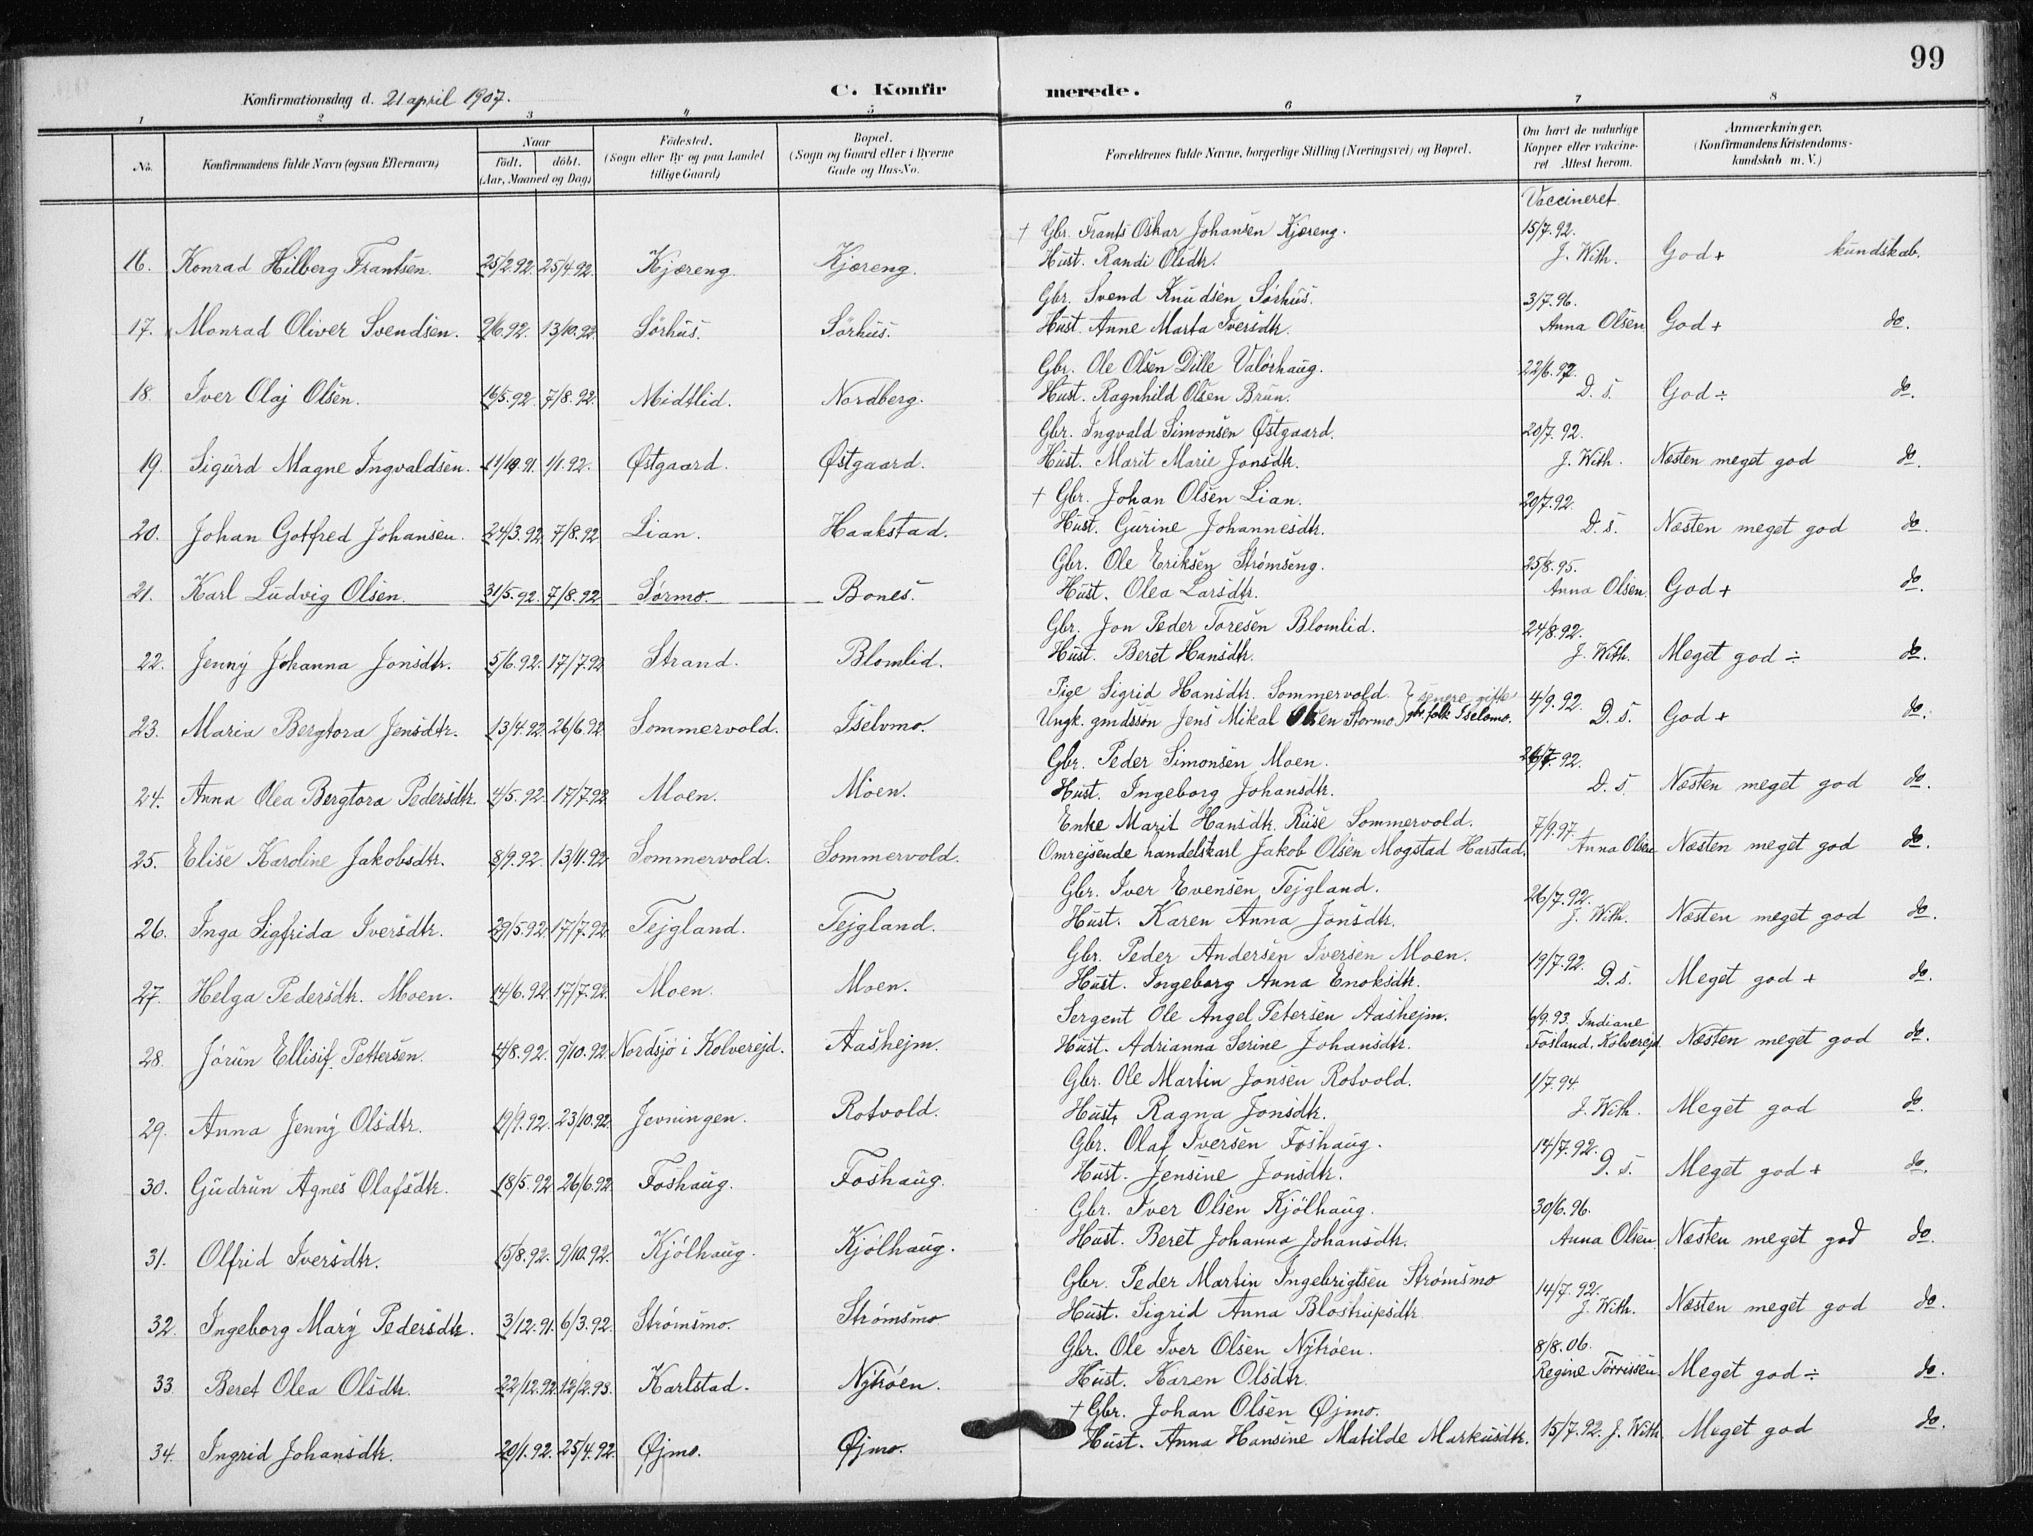 99
Konfirmationsdag d. 21 april 1907.
C. Konfirmerede.
1 2 3 4 5 6 7 8
No. Konfirmandens fulde Navn (ogsaa Efternavn) Naar födt. döbt. (Aar, Maaned og Dag) Födested. (Sogn eller By og paa Landet tillige Gaard) Bopæl. (Sogn og Gaard eller i Byerne Gade og Hus-No. Forældrenes fulde Navne, borgerlige Stilling (Næringsvei) og Bopæl. Om havt de naturlige Kopper eller vakcineret Attest herom. Anmærkninger. (Konfirmandens Kristendomskundskab m. V.)
Vaccineret
† Gbr. Frants Oskar Johansen Kjæreng. 15/7.92.
16. Konrad Hilberg Frantsen. 25/2.92. 25/4.92. Kjæreng. Kjæreng. Hust. Randi Olsdtr. J. With. God + kundskab.
Gbr. Svend Knudsen Sörhus. 3/7.96.
17. Monrad Oliver Svendsen. 9/6.92. 13/10.92. Sörhus. Sörhus. Hust. Anne Marta Iversdtr. Anna Olsen God + do.
Gbr. Ole Olsen Dille Valörhaug. 22/6.97.
18. Iver Olaj Olsen. 16/5.92. 7/8.92. Midtlid. Nordberg. Hust. Ragnhild Olsen Brun. D. s. God ÷ do.
Gbr. Ingvald Simonsen Østgaard. 20/7.92.
19. Sigurd Magne Ingvaldsen. 11/10.91. 1/1.92. Østgaard. Østgaard. Hust. Marit Marie Jonsdtr. J. With. Næsten meget god do.
† Gbr. Johan Olsen Lian. 20/7.92.
20. Johan Gotfred Johansen. 24/3.92. 7/8.92 Lian. Haakstad. Hust. Gurine Johannesdtr. D. s. Næsten meget god do.
Gbr. Ole Eriksen Strømseng. 25/8.95.
21. Karl Ludvig Olsen. 31/5.92. 7/8.92 Sørmo. Bones. Hust. Olea Larsdtr. Anna Olsen. God + do.
Gbr. Jon Peder Toresen Blomlid. 24/8.92.
22. Jenny Johanna Jonsdtr. 5/6.92. 17/7.92 Strand. Blomlid. Hust. Beret Hansdtr. J. With. Meget god ÷ do.
Pige Sigrid Hansdtr. Sommervold. } senere gifte 4/9.92.
23. Maria Bergtora Jensdtr. 13/4.92. 26/6.92 Sommervold. Iselvmo. Ungk. gmdssøn Jens Mikal Olsen Stormo. gbr. folk Iselvmo. D. s. God + do.
Gbr. Peder Simonsen Moen. 26/7.92.
24. Anna Olea Bergtora Pedersdtr. 4/5.92. 17/7.92 Moen. Moen. Hust. Ingeborg Johansdtr. D. s. Næsten meget god do.
Enke Marit Hansdtr. Ruse Sommervold. 7/9.97.
25. Elise Karoline Jakobsdtr. 8/9.92. 13/11.92 Sommervold. Sommervold. Omrejsende handelskarl Jakob Olsen Mogstad Harstad. Anna Olsen Næsten meget god do.
Gbr. Iver Evensen Tejgland. 26/7.92.
26. Inga Sigfrida Iversdtr. 29/5.92. 17/7.92. Tejgland. Tejgland. Hust. Karen Anna Jonsdtr. J. With. Næsten meget god do.
Gbr. Peder Andersen Iversen Moen. 19/7.92.
27. Helga Pedersdtr. Moen. 14/6.92 17/7.92. Moen. Moen. Hust. Ingeborg Anna Enoksdtr. D. s. Meget god + do.
Sergent Ole Angel Petersen Aashejm. 6/9.93. Indiane
28. Jorun Ellisif Pettersen. 4/8.92. 9/10.92. Nordsjø i Kolverejd. Aashejm. Hust. Adrianna Serine Johansdtr. Fosland. Kolverejd. Næsten meget god do.
Gbr. Ole Martin Jonsen Rotvold. 1/7.94.
29. Anna Jenny Olsdtr. 19/9.92. 23/10.92 Jevningen. Rotvold. Hust. Ragna Jonsdtr. J. With. Meget god do.
Gbr. Olaf Iversen Foshaug. 14/7.92.
30. Gudrun Agnes Olafsdtr. 18/5.92. 26/6.92 Foshaug. Foshaug. Hust. Jensine Jonsdtr. D. s. Meget god + do.
Gbr. Iver Olsen Kjölhaug. 30/6.96.
31. Olfrid Iversdtr. 15/8.92. 9/10.92. Kjölhaug. Kjölhaug. Hust. Beret Johanna Johansdtr. Anna Olsen. Næsten meget god do.
Gbr. Peder Martin Ingebrigtsen Strømsmo 14/7.92.
32. Ingeborg Mary Pedersdtr. 3/12.91. 6/3.92. Strømsmo. Strømsmo. Hust. Sigrid Anna Blostrupsdtr J. With. Næsten meget god do.
Gbr. Ole Iver Olsen Nytrøen. 8/8.06.
33. Beret Olea Olsdtr. 22/12.92. 12/2.93. Karlstad. Nytrøen. Hust. Karen Olsdtr. Regine Torrissen. Meget god ÷ do.
† Gbr. Johan Olsen Øjmo.
34. Ingrid Johansdtr. 20/1.92. 25/4.92. Øjmo. Øjmo. Hust. Anna Hansine Matilde Markusdtr. 15/7.92. J. With. Meget god do.